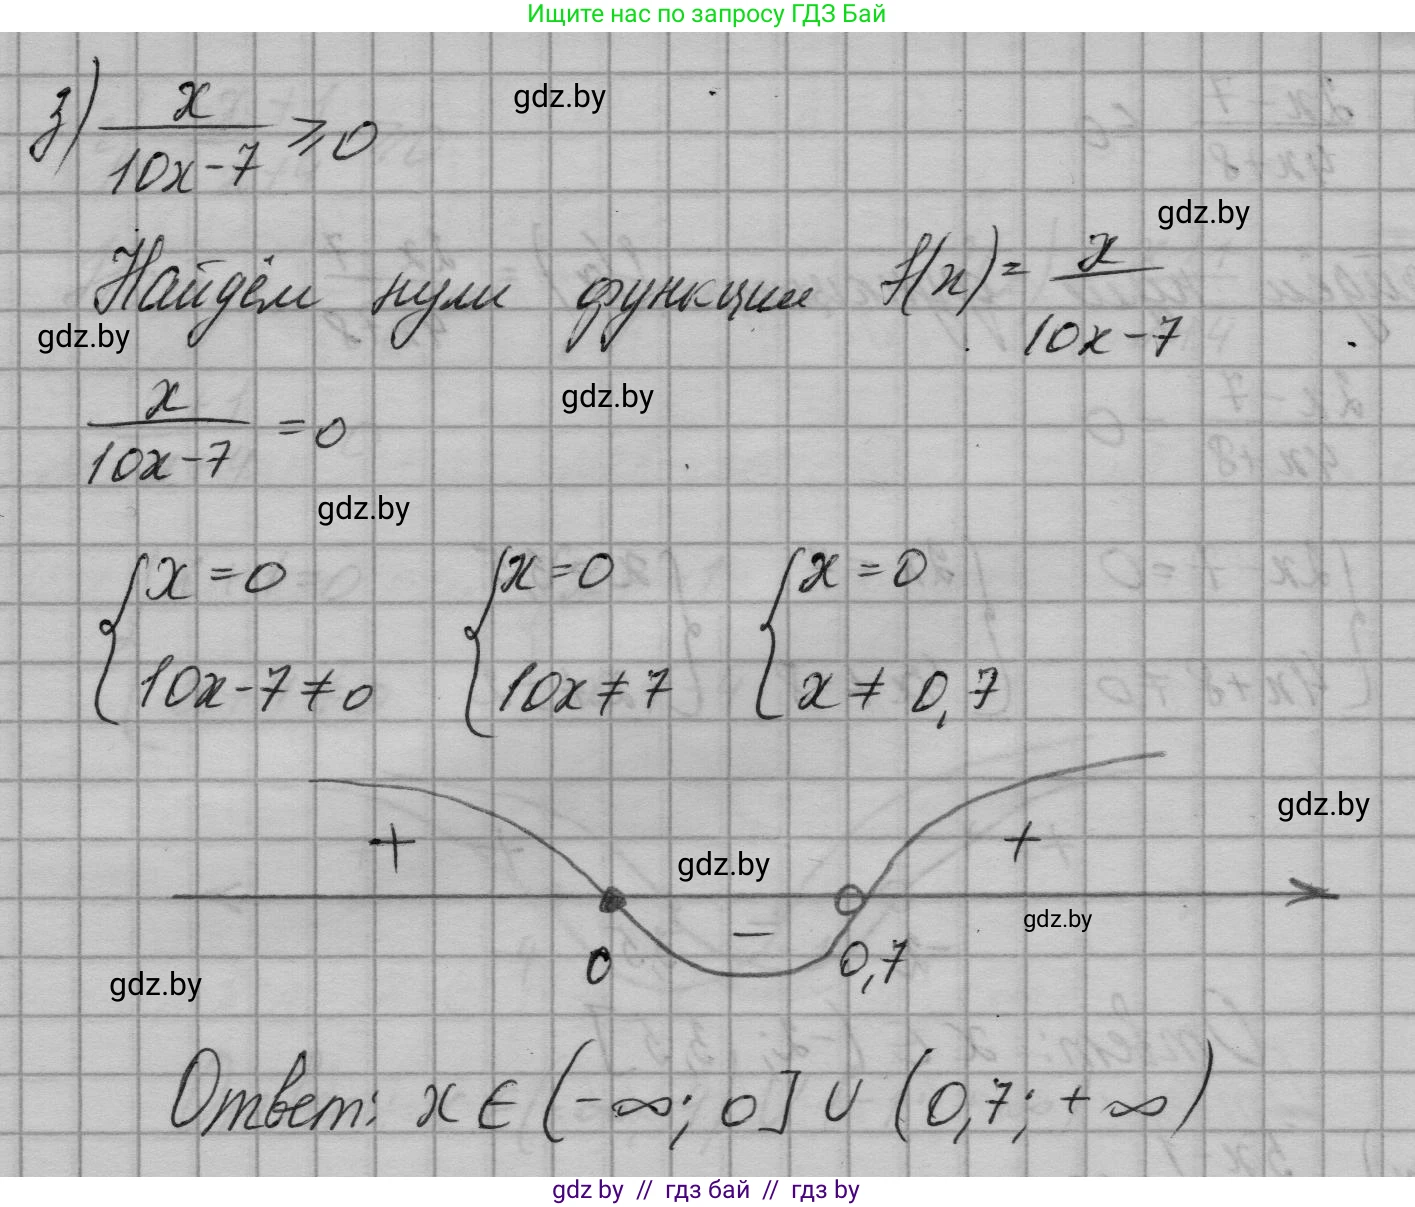 Ищите нас по запросу ГДЗ Бай
з) x/(10x-7) ≥ 0
gdz.by
gdz.by
Найдём нули функции f(x) = x/(10x-7)
gdz.by
gdz.by
x/(10x-7) = 0
gdz.by
{x = 0 {x = 0 {x = 0
{10x-7 ≠ 0 {10x ≠ 7 {x ≠ 0,7
gdz.by
+ gdz.by +
gdz.by
−
0 0,7
gdz.by
Ответ: x ∈ (-∞; 0] ∪ (0,7; +∞)
gdz by // гдз бай // гдз by